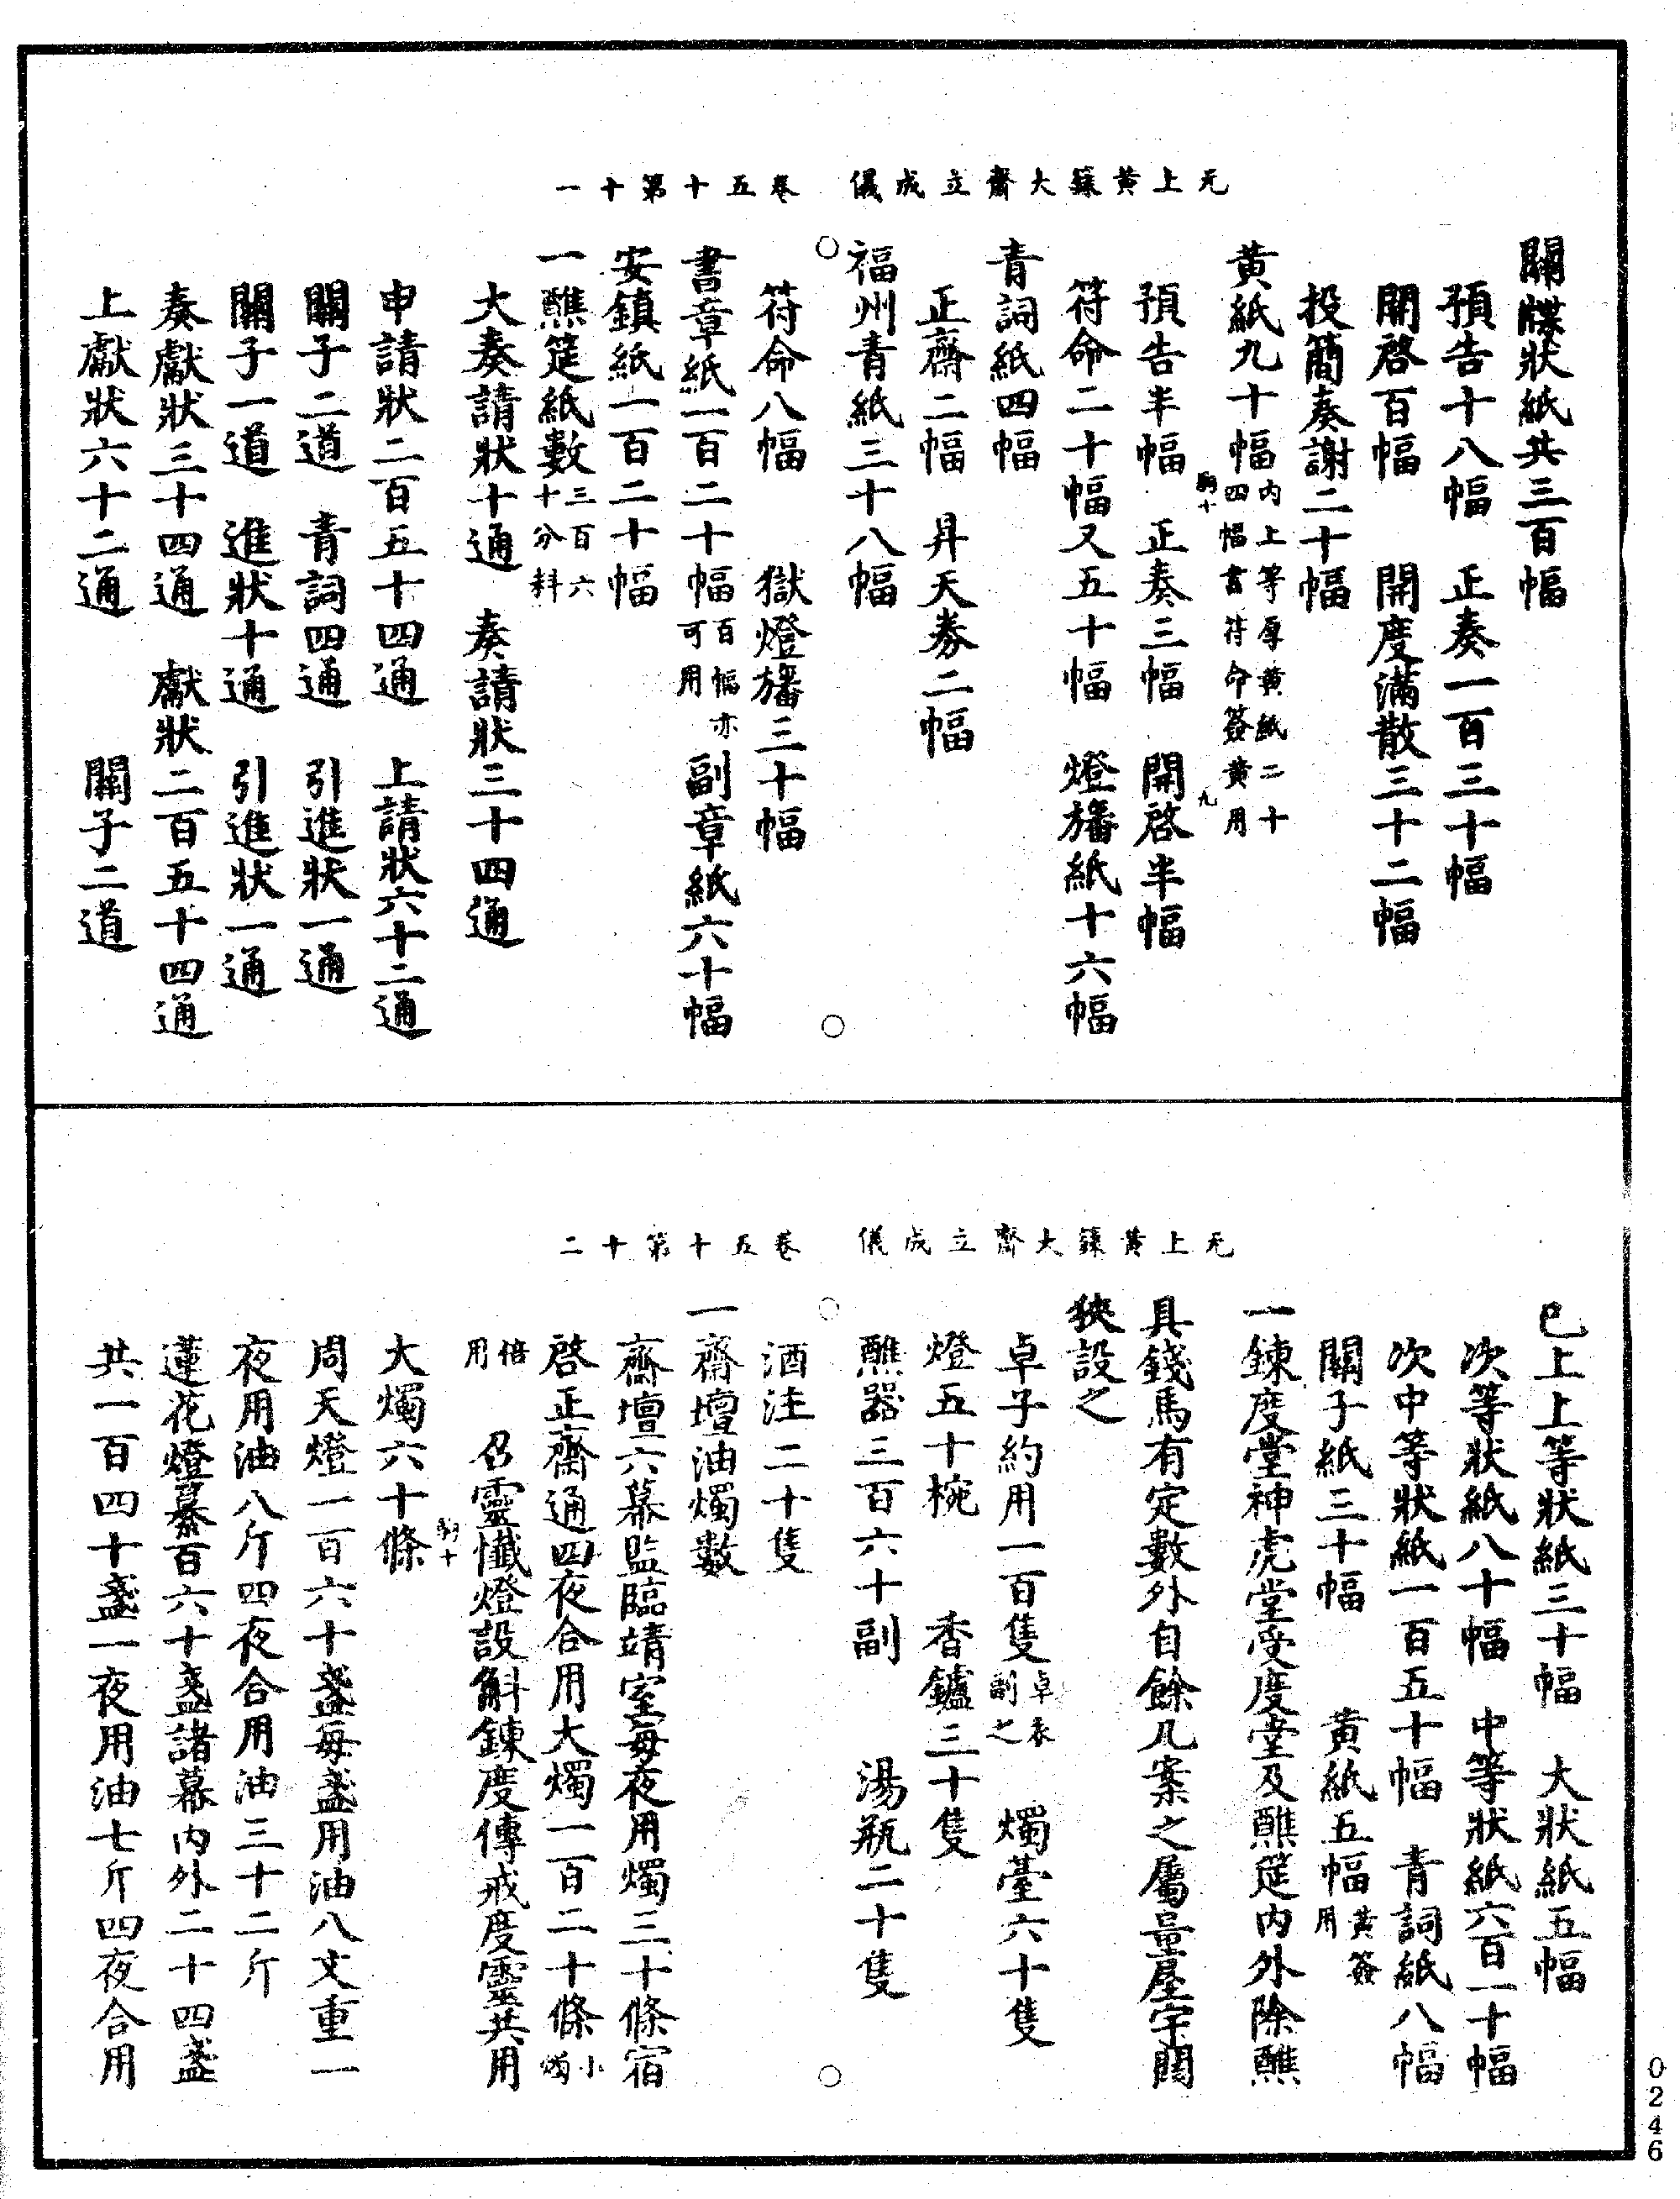 无上黃籙大齋立成儀　卷五十第十一
關牒狀紙共三百幅
預告十八幅　正奏一百三十幅
開啓百幅　開度滿散三十二幅
投簡奏謝二十幅
黃紙九十幅内上等厚黄紙二十四幅書符命簽黄用
預告半幅　正奏三幅　開啓半幅
駒十　九
符命二十幅又五十幅　燈旛紙十六幅
青詞紙四幅
正齋二幅　昇天券二幅
福州青紙三十八幅
符命八幅　獄燈旛三十幅
書章紙一百二十幅百幅亦可用　副章紙六十幅
安鎮紙一百二十幅
一醮筵紙數三百六十分料
大奏請狀十通　奏請狀三十四通
申請狀二百五十四通　上請狀六十二通
關子二道　青詞四通　引進狀一通
關子一道　進狀十通　引進狀一通
奏獻狀三十四通　獻狀二百五十四通
上獻狀六十二通　關子二道
无上黃籙大齋立成儀　卷五十第十二
已上上等狀紙三十幅　大狀紙五幅
次等狀紙八十幅　中等狀紙六百一十幅
次中等狀紙一百五十幅　青詞紙八幅
關子紙三十幅　黄紙五幅黄簽用
一鍊度堂神虎堂受度堂及醮筵内外除醮
具錢馬有定數外自餘几案之屬量屋宇闊
狹設之
卓子約用一百隻卓衣副之　燭臺六十隻
燈五十椀　香鑪三十隻
醮器三百六十副　湯瓶二十隻
酒注二十隻
一齋壇油燭數
齋壇六幕監臨靖室每夜用燭三十條宿
啓正齋通四夜合用大燭一百二十條小燭
倍用　召靈懺燈設斛鍊度傳戒度靈共用
駒十
大燭六十條
周天燈一百六十盞每盞用油八文重一
夜用油八斤四夜合用油三十二斤
蓮花燈纂百六十盞諸幕内外二十四盞
共一百四十盞一夜用油七斤四夜合用
0246